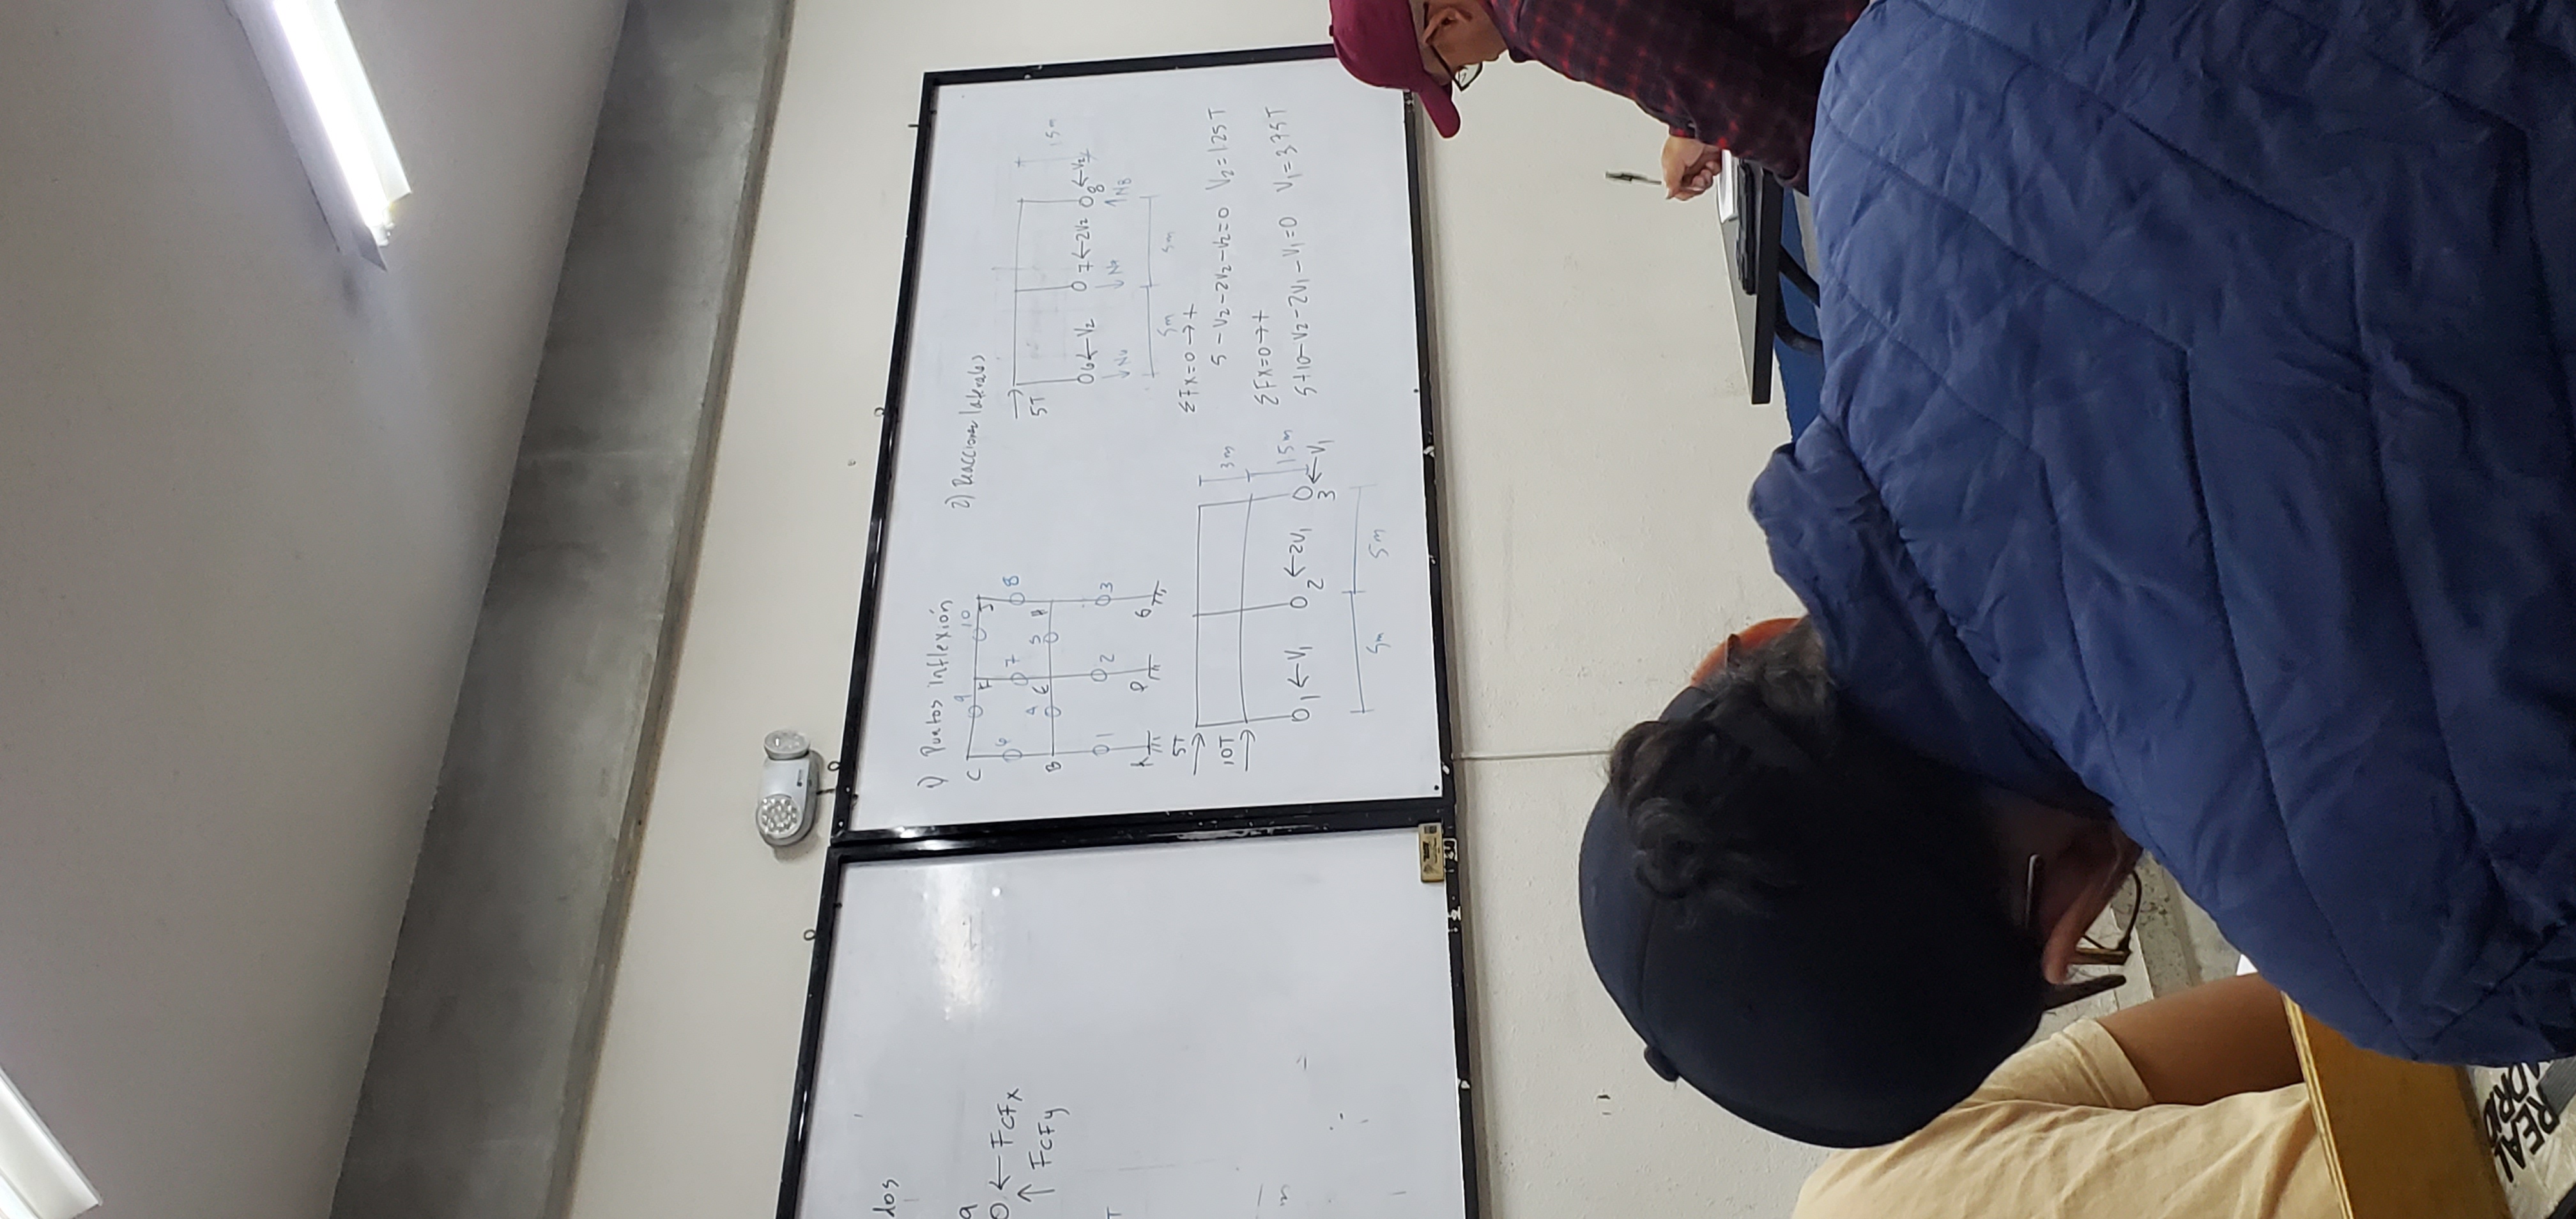 dos
9
← FcFx
↑ FcFy
T
m
1) Puntos inflexión
C 9 F 10 J
6 7 8
B 4 E 5 H
1 2 3
A D G
5T
10T
3m
1.5m
1 ← V1 2 ← 2V1 3 ← V1
5m 5m
2) Reacciones laterales
5T
1.5m
6 ← V2 7 ← 2V2 8 ← V2
↓ N6 ↓ N7 ↑ N8
5m 5m
ΣFx=0 →+
5 - V2 - 2V2 - V2 = 0 V2 = 1.25 T
ΣFx=0 →+
5+10 - V2 - 2V1 - V1 = 0 V1 = 3.75 T
REAL